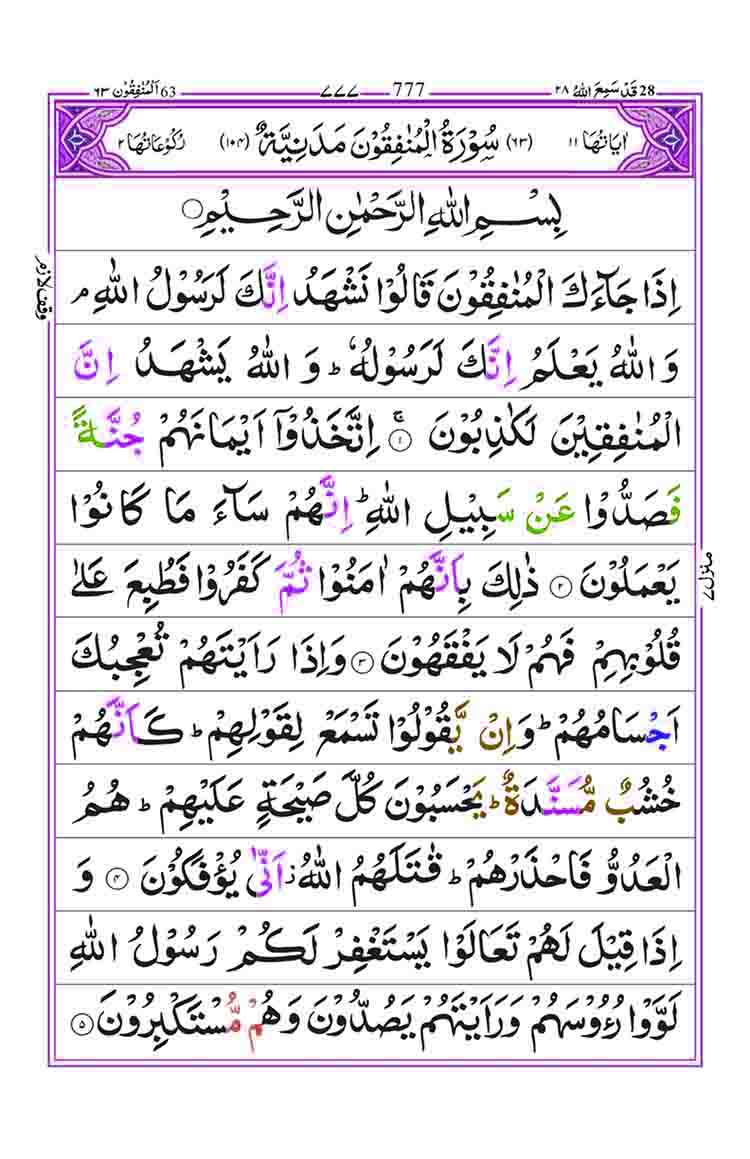 28 قَدْ سَمِعَ اللّٰهُ ٢٨ 777 ٧٧٧ 63 اَلْمُنٰفِقُوْن ٦٣
اٰيَاتُهَا ١١ (٦٣) سُوْرَةُ الْمُنٰفِقُوْنَ مَدَنِيَّةٌ (١٠٤) رُكُوْعَاتُهَا ٢
بِسْمِ اللّٰهِ الرَّحْمٰنِ الرَّحِيْمِ ۝
اِذَا جَآءَكَ الْمُنٰفِقُوْنَ قَالُوْا نَشْهَدُ اِنَّكَ لَرَسُوْلُ اللّٰهِ ۘ
وقف لازم
وَ اللّٰهُ يَعْلَمُ اِنَّكَ لَرَسُوْلُهٗ ؕ وَ اللّٰهُ يَشْهَدُ اِنَّ
الْمُنٰفِقِيْنَ لَكٰذِبُوْنَ ۚ ۝١ اِتَّخَذُوْۤا اَيْمَانَهُمْ جُنَّةً
فَصَدُّوْا عَنْ سَبِيْلِ اللّٰهِ ؕ اِنَّهُمْ سَآءَ مَا كَانُوْا
يَعْمَلُوْنَ ۝٢ ذٰلِكَ بِاَنَّهُمْ اٰمَنُوْا ثُمَّ كَفَرُوْا فَطُبِعَ عَلٰى
منزل ٧
قُلُوْبِهِمْ فَهُمْ لَا يَفْقَهُوْنَ ۝٣ وَاِذَا رَاَيْتَهُمْ تُعْجِبُكَ
اَجْسَامُهُمْ ؕ وَاِنْ يَّقُوْلُوْا تَسْمَعْ لِقَوْلِهِمْ ؕ كَاَنَّهُمْ
خُشُبٌ مُّسَنَّدَةٌ ؕ يَحْسَبُوْنَ كُلَّ صَيْحَةٍ عَلَيْهِمْ ؕ هُمُ
الْعَدُوُّ فَاحْذَرْهُمْ ؕ قٰتَلَهُمُ اللّٰهُ ؗ اَنّٰى يُؤْفَكُوْنَ ۝٤ وَ
اِذَا قِيْلَ لَهُمْ تَعَالَوْا يَسْتَغْفِرْ لَكُمْ رَسُوْلُ اللّٰهِ
لَوَّوْا رُءُوْسَهُمْ وَرَاَيْتَهُمْ يَصُدُّوْنَ وَهُمْ مُّسْتَكْبِرُوْنَ ۝٥